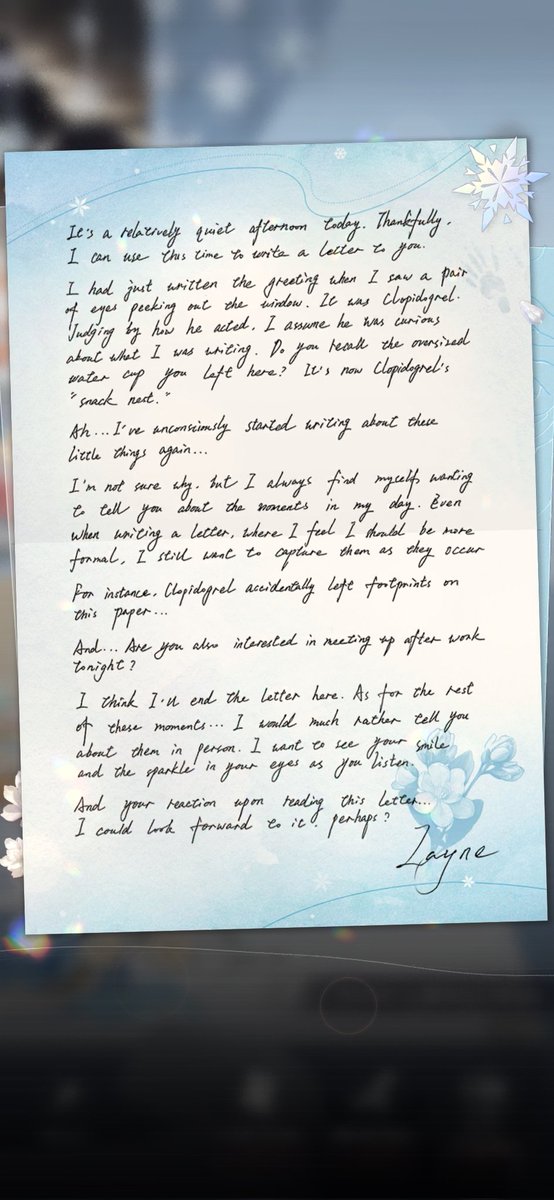 It's a relatively quiet afternoon today. Thankfully,
I can use this time to write a letter to you.
I had just written the greeting when I saw a pair
of eyes peeking out the window. It was Clopidogrel.
Judging by how he acted, I assume he was curious
about what I was writing. Do you recall the oversized
water cup you left here? It's now Clopidogrel's
"snack nest."
Ah... I've unconsciously started writing about these
little things again...
I'm not sure why, but I always find myself wanting
to tell you about the moments in my day. Even
when writing a letter, where I feel I should be more
formal, I still want to capture them as they occur
For instance, Clopidogrel accidentally left footprints on
this paper...
And... Are you also interested in meeting up after work
tonight?
I think I'll end the letter here. As for the rest
of these moments... I would much rather tell you
about them in person. I want to see your smile
and the sparkle in your eyes as you listen.
And your reaction upon reading this letter...
I could look forward to it, perhaps?
Zayne